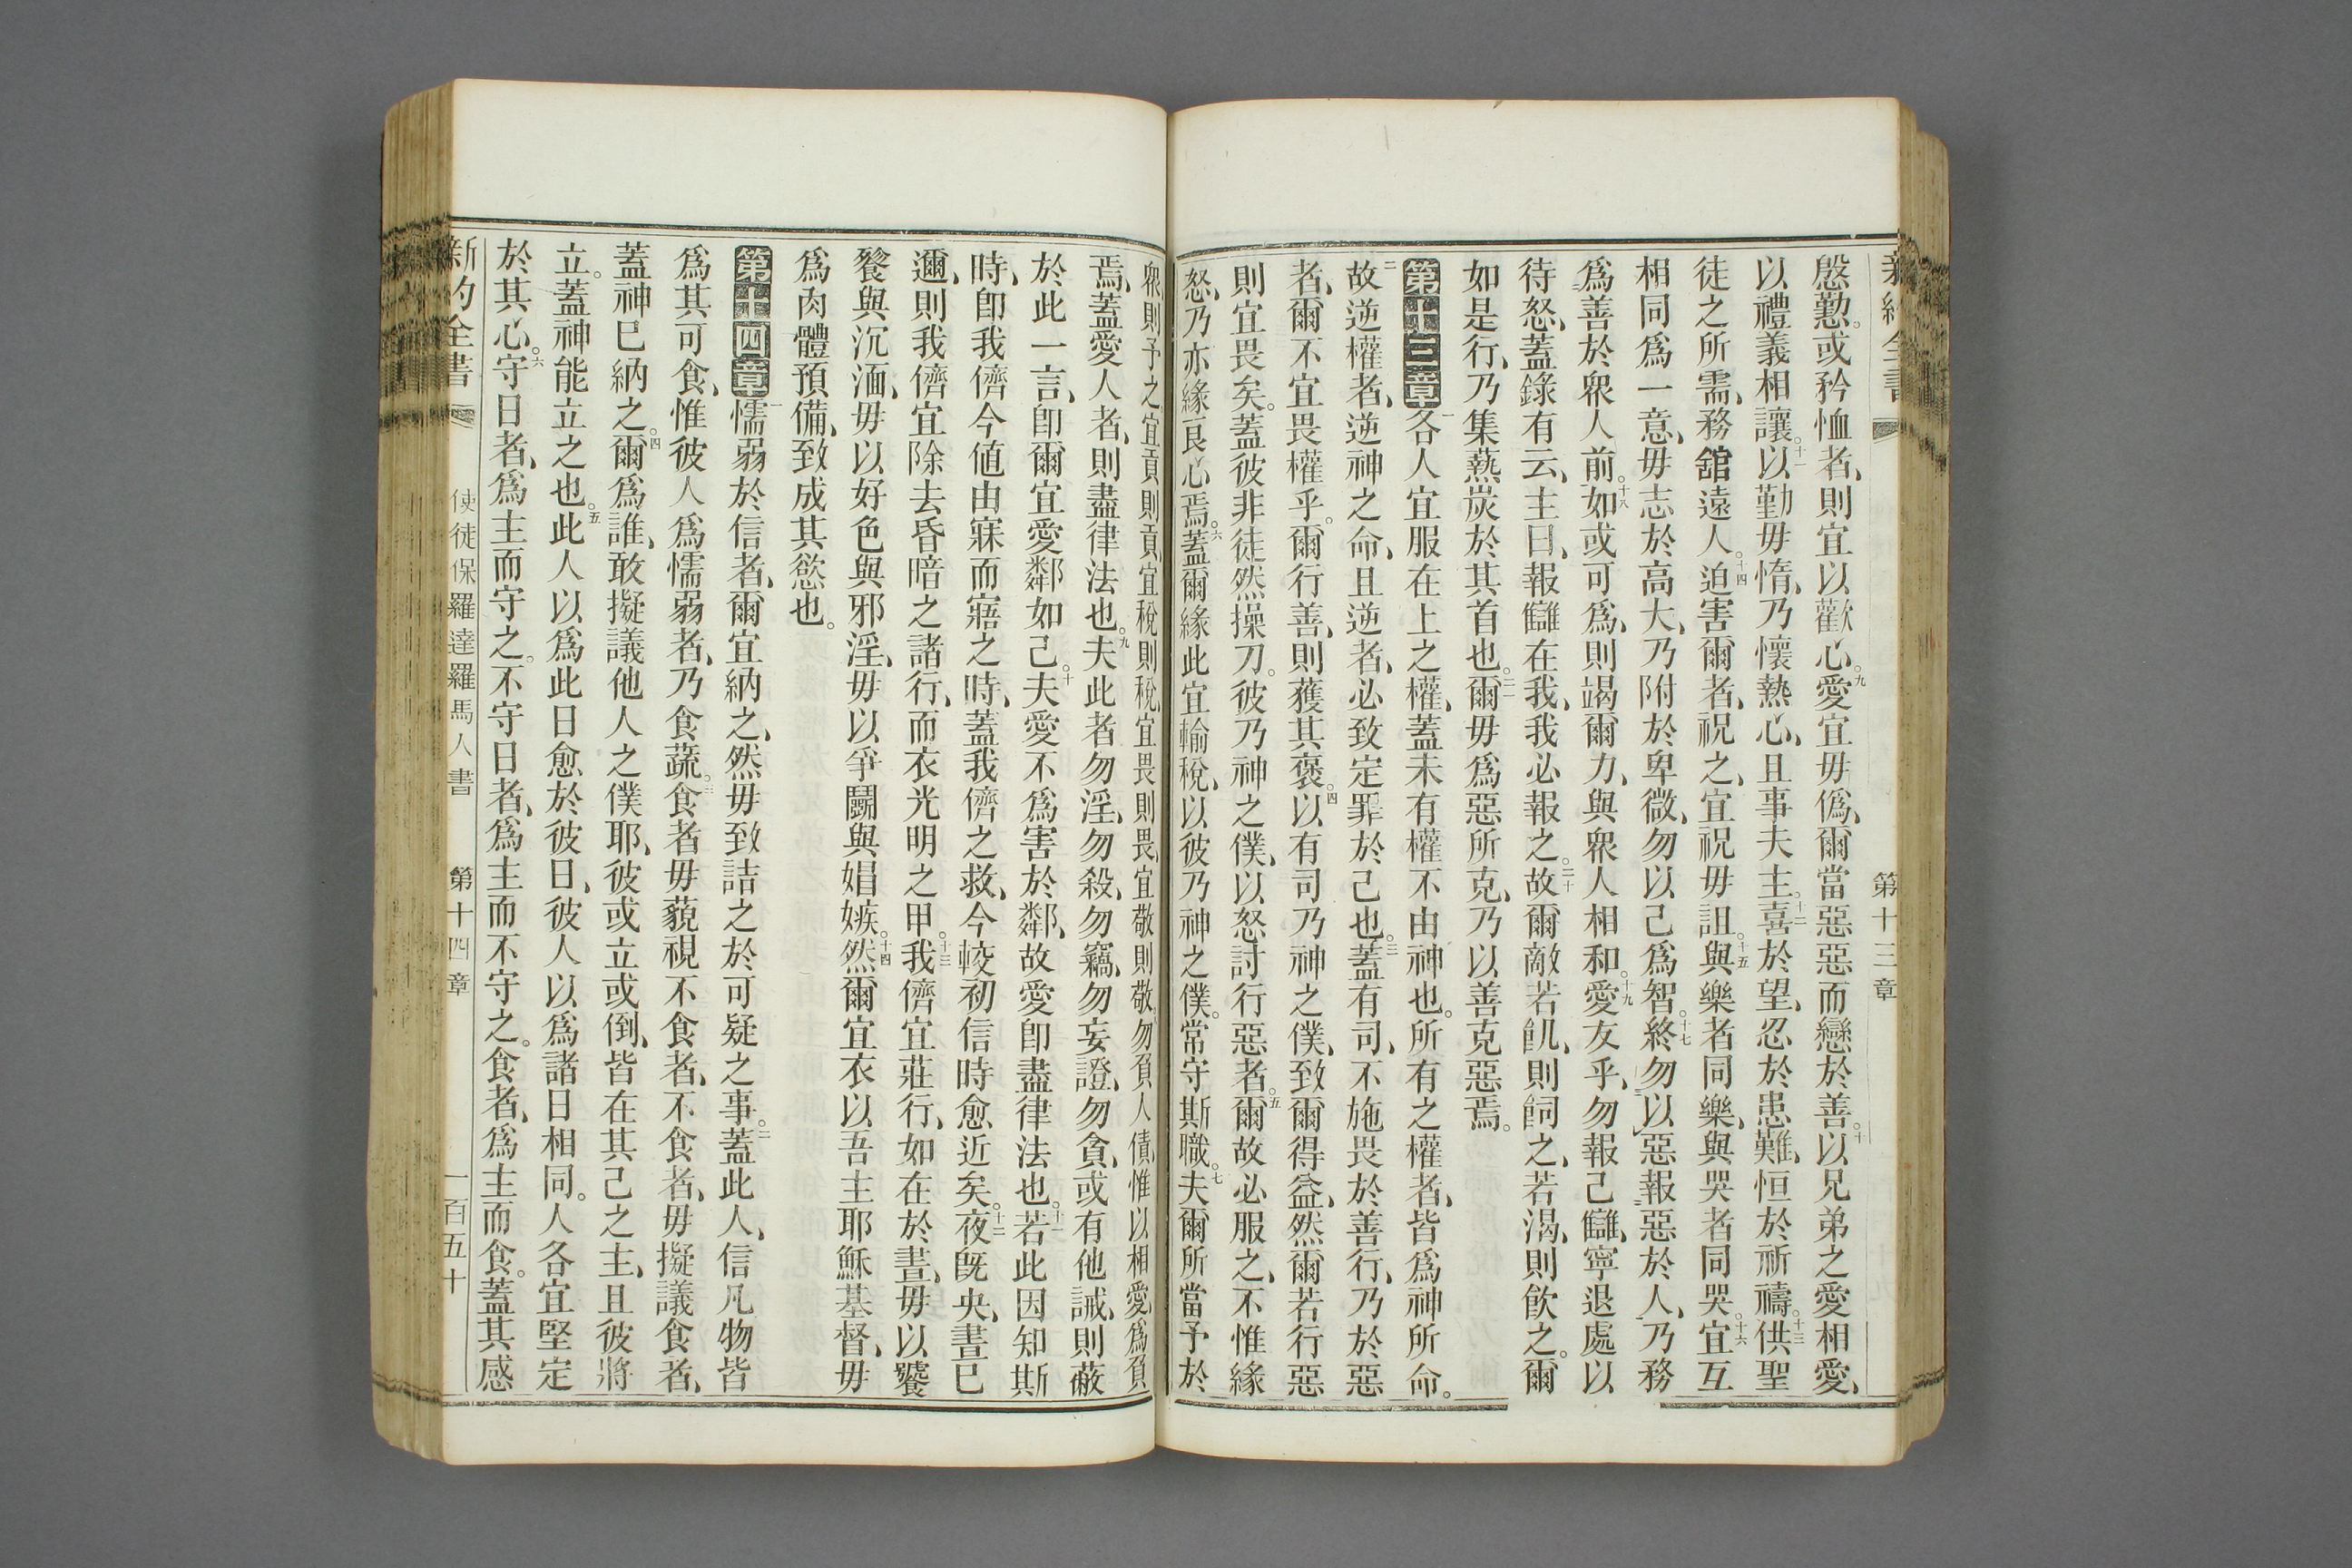 新約全書 第十三章
慇懃。或矜恤者、則宜以歡心。九愛宜毋僞、爾當惡惡而戀於善。十以兄弟之愛相愛、
以禮義相讓。十一以勤毋惰、乃懷熱心、且事夫主。十二喜於望、忍於患難、恒於祈禱。十三供聖
徒之所需、務舘遠人。十四迫害爾者、祝之、宜祝毋詛。十五與樂者同樂、與哭者同哭。十六宜互
相同爲一意、毋志於高大、乃附於卑微、勿以己爲智。十七終勿以惡報惡於人、乃務
爲善於衆人前。十八如或可爲、則竭爾力、與衆人相和。十九愛友乎、勿報己讎、寧退處以
待怒、蓋錄有云、主曰、報讎在我、我必報之。二十故爾敵若飢、則飼之、若渴、則飮之。爾
如是行、乃集爇炭於其首也。二一爾毋爲惡所克、乃以善克惡焉。
第十三章一各人宜服在上之權、蓋未有權不由神也。所有之權者、皆爲神所命。
二故逆權者、逆神之命、且逆者、必致定罪於己也。三蓋有司、不施畏於善行、乃於惡
者、爾不宜畏權乎。爾行善、則獲其褒。四以有司乃神之僕、致爾得益、然爾若行惡
則宜畏矣。蓋彼非徒然操刀。彼乃神之僕、以怒討行惡者。五爾故必服之、不惟緣
怒、乃亦緣良心焉。六蓋爾緣此宜輸稅、以彼乃神之僕。常守斯職。七夫爾所當予於
衆、則予之、宜貢則貢、宜稅則稅、宜畏則畏、宜敬則敬。勿負人債、惟以相愛爲負
焉、蓋愛人者、則盡律法也。九夫此者勿淫、勿殺、勿竊、勿妄證、勿貪、或有他誡、則蔽
於此一言、卽爾宜愛鄰如己。十夫愛不爲害於鄰、故愛卽盡律法也。十一若此因知斯
時、卽我儕今値由寐而寤之時、蓋我儕之救、今較初信時愈近矣。十二夜旣央、晝已
邇、則我儕宜除去昏暗之諸行、而衣光明之甲。十三我儕宜莊行、如在於晝、毋以饕
餮與沉湎、毋以好色與邪淫、毋以爭鬭與娼嫉。十四然爾宜衣以吾主耶穌基督、毋
爲肉體預備、致成其慾也。
第十四章一懦弱於信者、爾宜納之、然毋致詰之於可疑之事。二蓋此人、信凡物皆
爲其可食、惟彼人爲懦弱者、乃食蔬。三食者毋藐視不食者、不食者、毋擬議食者、
蓋神已納之。四爾爲誰、敢擬議他人之僕耶、彼或立或倒、皆在其己之主、且彼將
立。蓋神能立之也。五此人以爲此日愈於彼日、彼人以爲諸日相同。人各宜堅定
於其心。六守日者、爲主而守之。不守日者、爲主而不守之。食者、爲主而食。蓋其感
新約全書 使徒保羅達羅馬人書 第十四章 一百五十